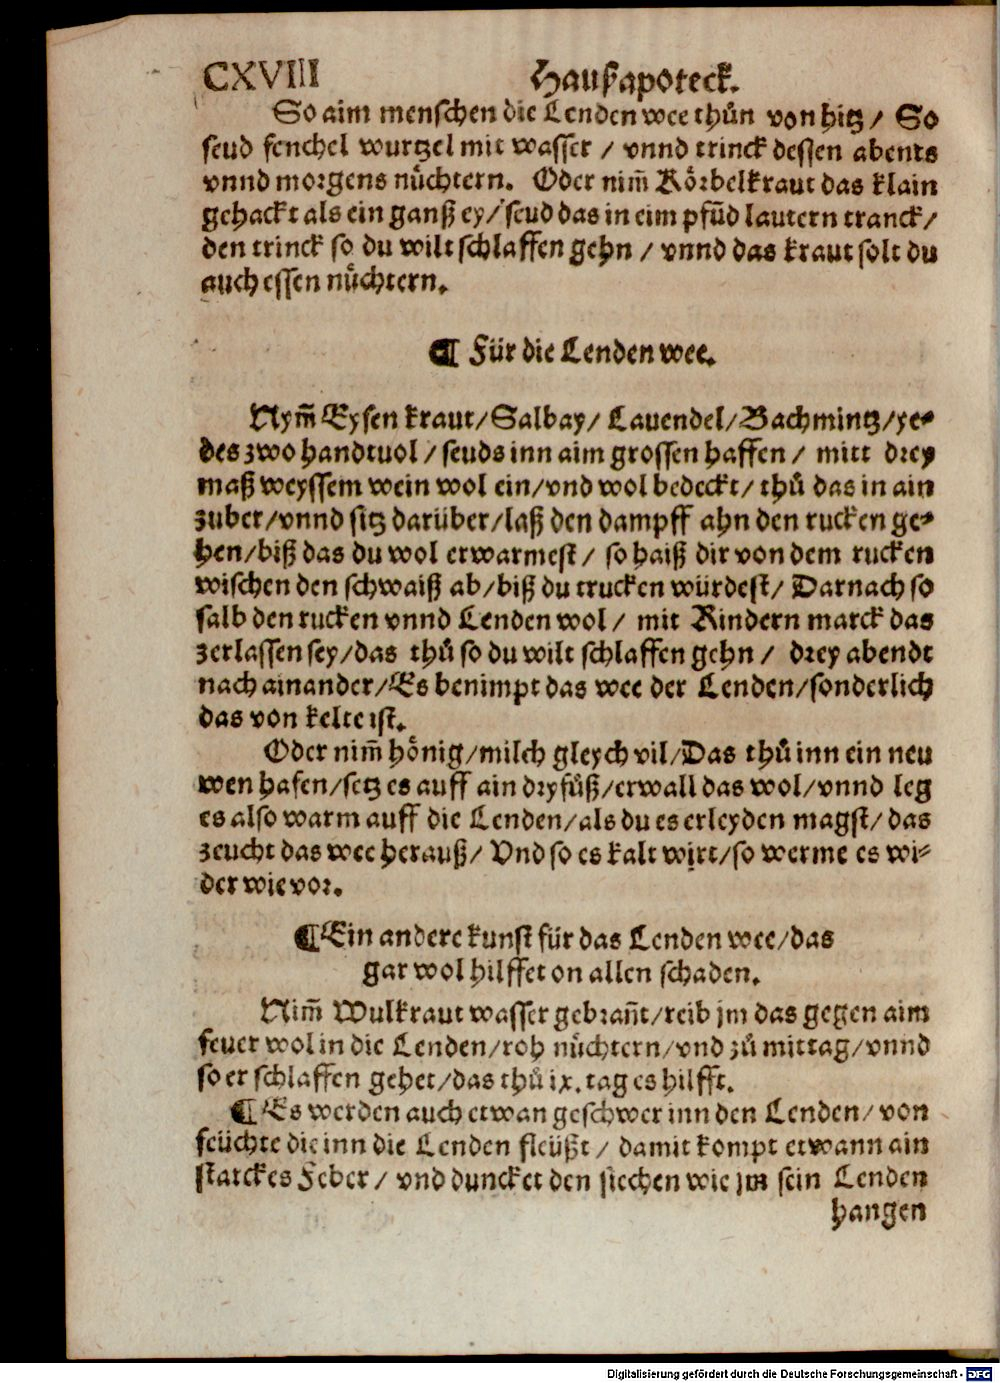 CXVIII Haußapoteck.
So aim menschen die Lenden wee thůn von hitz / So
seud fenchel wurtzel mit wasser / vnnd trinck dessen abents
vnnd morgens nůchtern. Oder nim̄ Körbelkraut das klain
gehackt als ein ganß ey / seud das in eim pfūd lautern tranck /
den trinck so du wilt schlaffen gehn / vnnd das kraut solt du
auch essen nůchtern.
¶ Für die Lenden wee.
Nym̄ Eysen kraut / Salbay / Lauendel / Bachmintz / ye-
des zwo handtuol / seuds inn aim grossen haffen / mitt drey
maß weyssem wein wol ein / vnd wol bedeckt / thů das in ain
zuber / vnnd sitz darüber / laß den dampff ahn den rucken ge-
hen / biß das du wol erwarmest / so haiß dir von dem rucken
wischen den schwaiß ab / biß du trucken würdest / Darnach so
salb den rucken vnnd Lenden wol / mit Rindern marck das
zerlassen sey / das thů so du wilt schlaffen gehn / drey abendt
nach ainander / Es benimpt das wee der Lenden / sonderlich
das von kelte ist.
Oder nim̄ hönig / milch gleych vil / Das thů inn ein neu
wen hafen / setz es auff ain dryfůß / erwall das wol / vnnd leg
es also warm auff die Lenden / als du es erleyden magst / das
zeucht das wee herauß / Vnd so es kalt wirt / so werme es wi-
der wie vor.
¶ Ein andere kunst für das Lenden wee / das
gar wol hilffet on allen schaden.
Nim̄ Wulkraut wasser gebran̄t / reib jm das gegen aim
feuer wol in die Lenden / roh nůchtern / vnd zů mittag / vnnd
so er schlaffen gehet / das thů ix. tag es hilfft.
¶ Es werden auch etwan geschwer inn den Lenden / von
feüchte die inn die Lenden fleüßt / damit kompt etwann ain
starckes Feber / vnd duncket den siechen wie jm sein Lenden
hangen
Digitalisierung gefördert durch die Deutsche Forschungsgemeinschaft - DFG